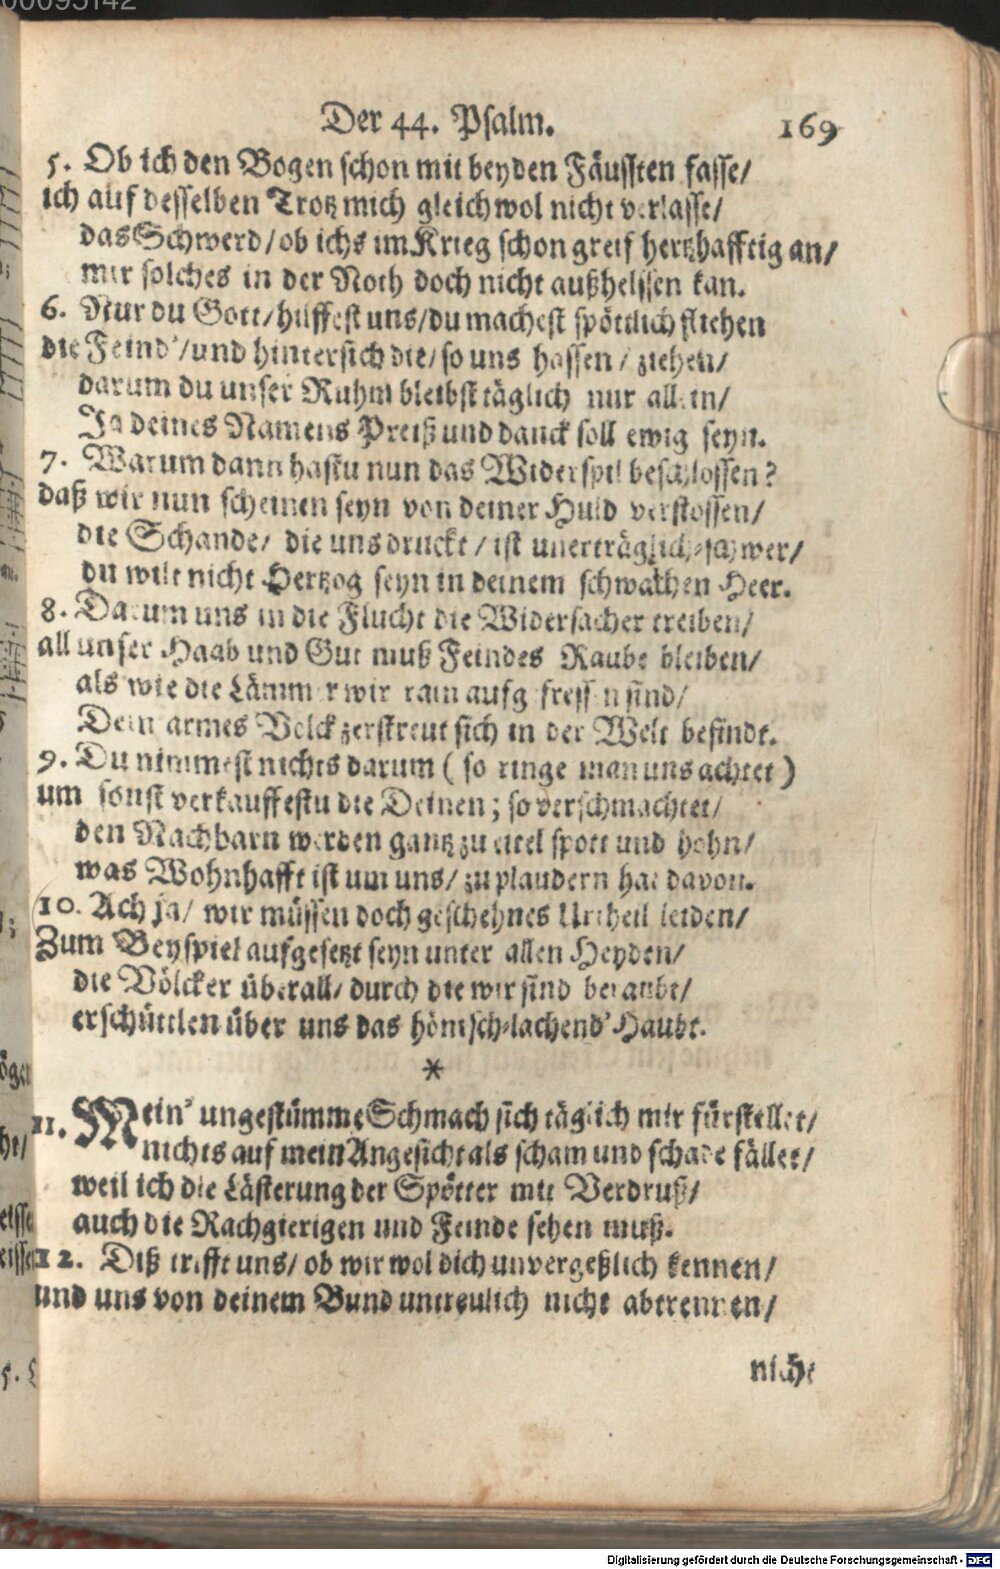 00095142
Der 44. Psalm. 169
5. Ob ich den Bogen schon mit beyden Fäussten fasse/
ich auf desselben Trotz mich gleichwol nicht verlasse/
das Schwerd/ ob ichs im Krieg schon greif hertzhafftig an/
mir solches in der Noth doch nicht außhelffen kan.
6. Nur du Gott/ hilffest uns/ du machest spöttlich fliehen
die Feind'/ und hintersich die/ so uns hassen/ ziehen/
darum du unser Ruhm bleibst täglich nur allein/
Ja deines Namens Preiß und danck soll ewig seyn.
7. Warum dann hastu nun das Widerspil beschlossen?
daß wir nun scheinen seyn von deiner Huld verstossen/
die Schande/ die uns druckt/ ist unerträglich-schwer/
du wilt nicht Hertzog seyn in deinem schwachen Heer.
8. Darum uns in die Flucht die Widersacher treiben/
all unser Haab und Gut muß Feindes Raube bleiben/
als wie die Lämmer wir rain aufgfressen sind/
Dein armes Volck zerstreut sich in der Welt befindt.
9. Du nimmest nichts darum ( so ringe man uns achtet )
um sonst verkauffestu die Deinen; so verschmachtet/
den Nachbarn werden gantz zu eitel spott und hohn/
was Wohnhafft ist um uns/ zu plaudern hat davon.
10. Ach ja/ wir müssen doch geschehnes Urtheil leiden/
Zum Beyspiel aufgesetzt seyn unter allen Heyden/
die Völcker überall/ durch die wir sind beraubt/
erschüttlen über uns das hönisch-lachend' Haubt.
*
11. Mein' ungestümme Schmach sich täglich mir fürstellet/
nichts auf mein Angesicht als scham und schade fället/
weil ich die Lästerung der Spötter mit Verdruß/
auch die Rachgierigen und Feinde sehen muß.
12. Diß trifft uns/ ob wir wol dich unvergeßlich kennen/
und uns von deinem Bund untreulich nicht abtrennen/
nicht
Digitalisierung gefördert durch die Deutsche Forschungsgemeinschaft - DFG